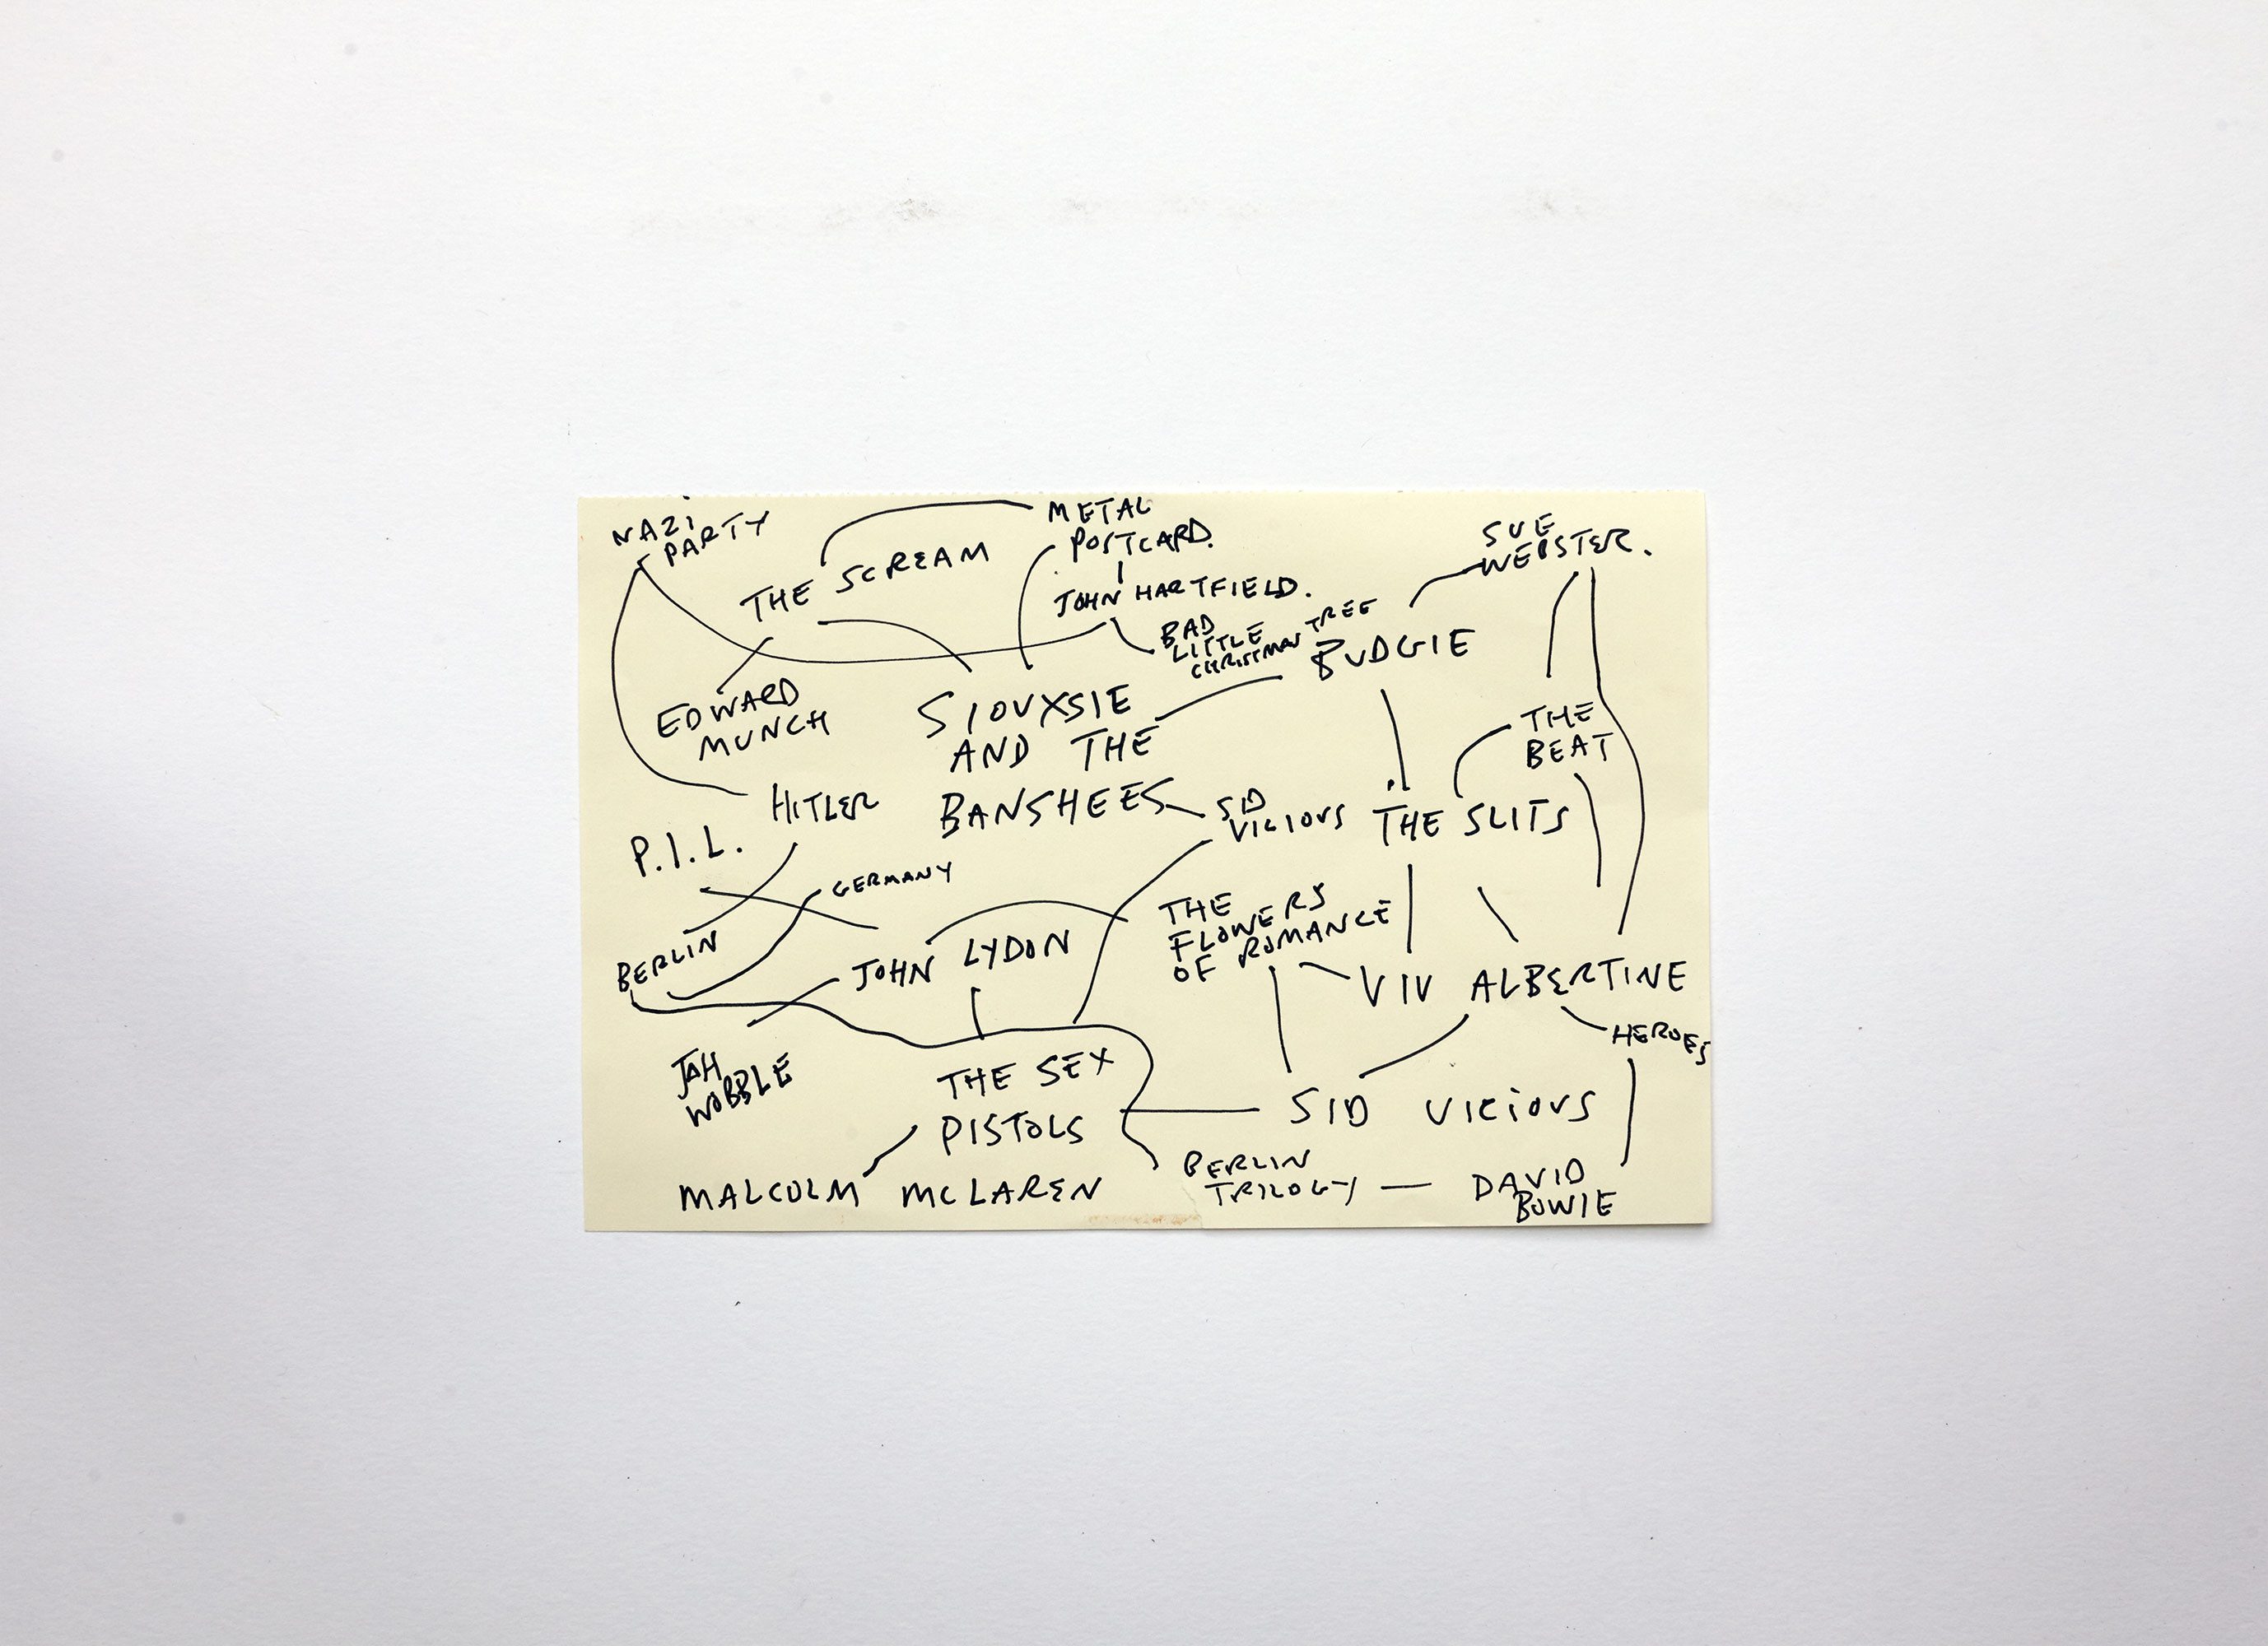 NAZI
PARTY
THE SCREAM
METAL
POSTCARD.
JOHN HARTFIELD.
BAD
LITTLE
CHRISTMAS TREE
SUE
WEBSTER.
BUDGIE
EDWARD
MUNCH
SIOUXSIE
AND THE
BANSHEES
THE
BEAT
HITLER
SID
VICIOUS
THE SLITS
P.I.L.
GERMANY
BERLIN
JOHN LYDON
THE
FLOWERS
OF ROMANCE
VIV ALBERTINE
HEROES
JAH
WOBBLE
THE SEX
PISTOLS
SID VICIOUS
MALCOLM MCLAREN
BERLIN
TRILOGY
DAVID
BOWIE